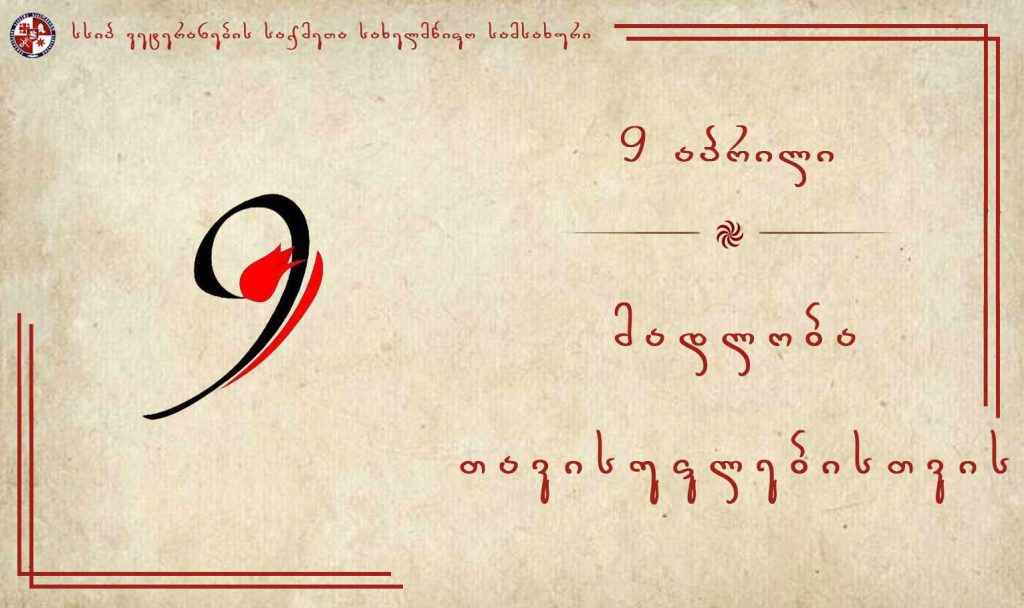 სსიპ ვეტერანების საქმეთა სახელმწიფო სამსახური
9 აპრილი
9
მადლობა
თავისუფლებისთვის